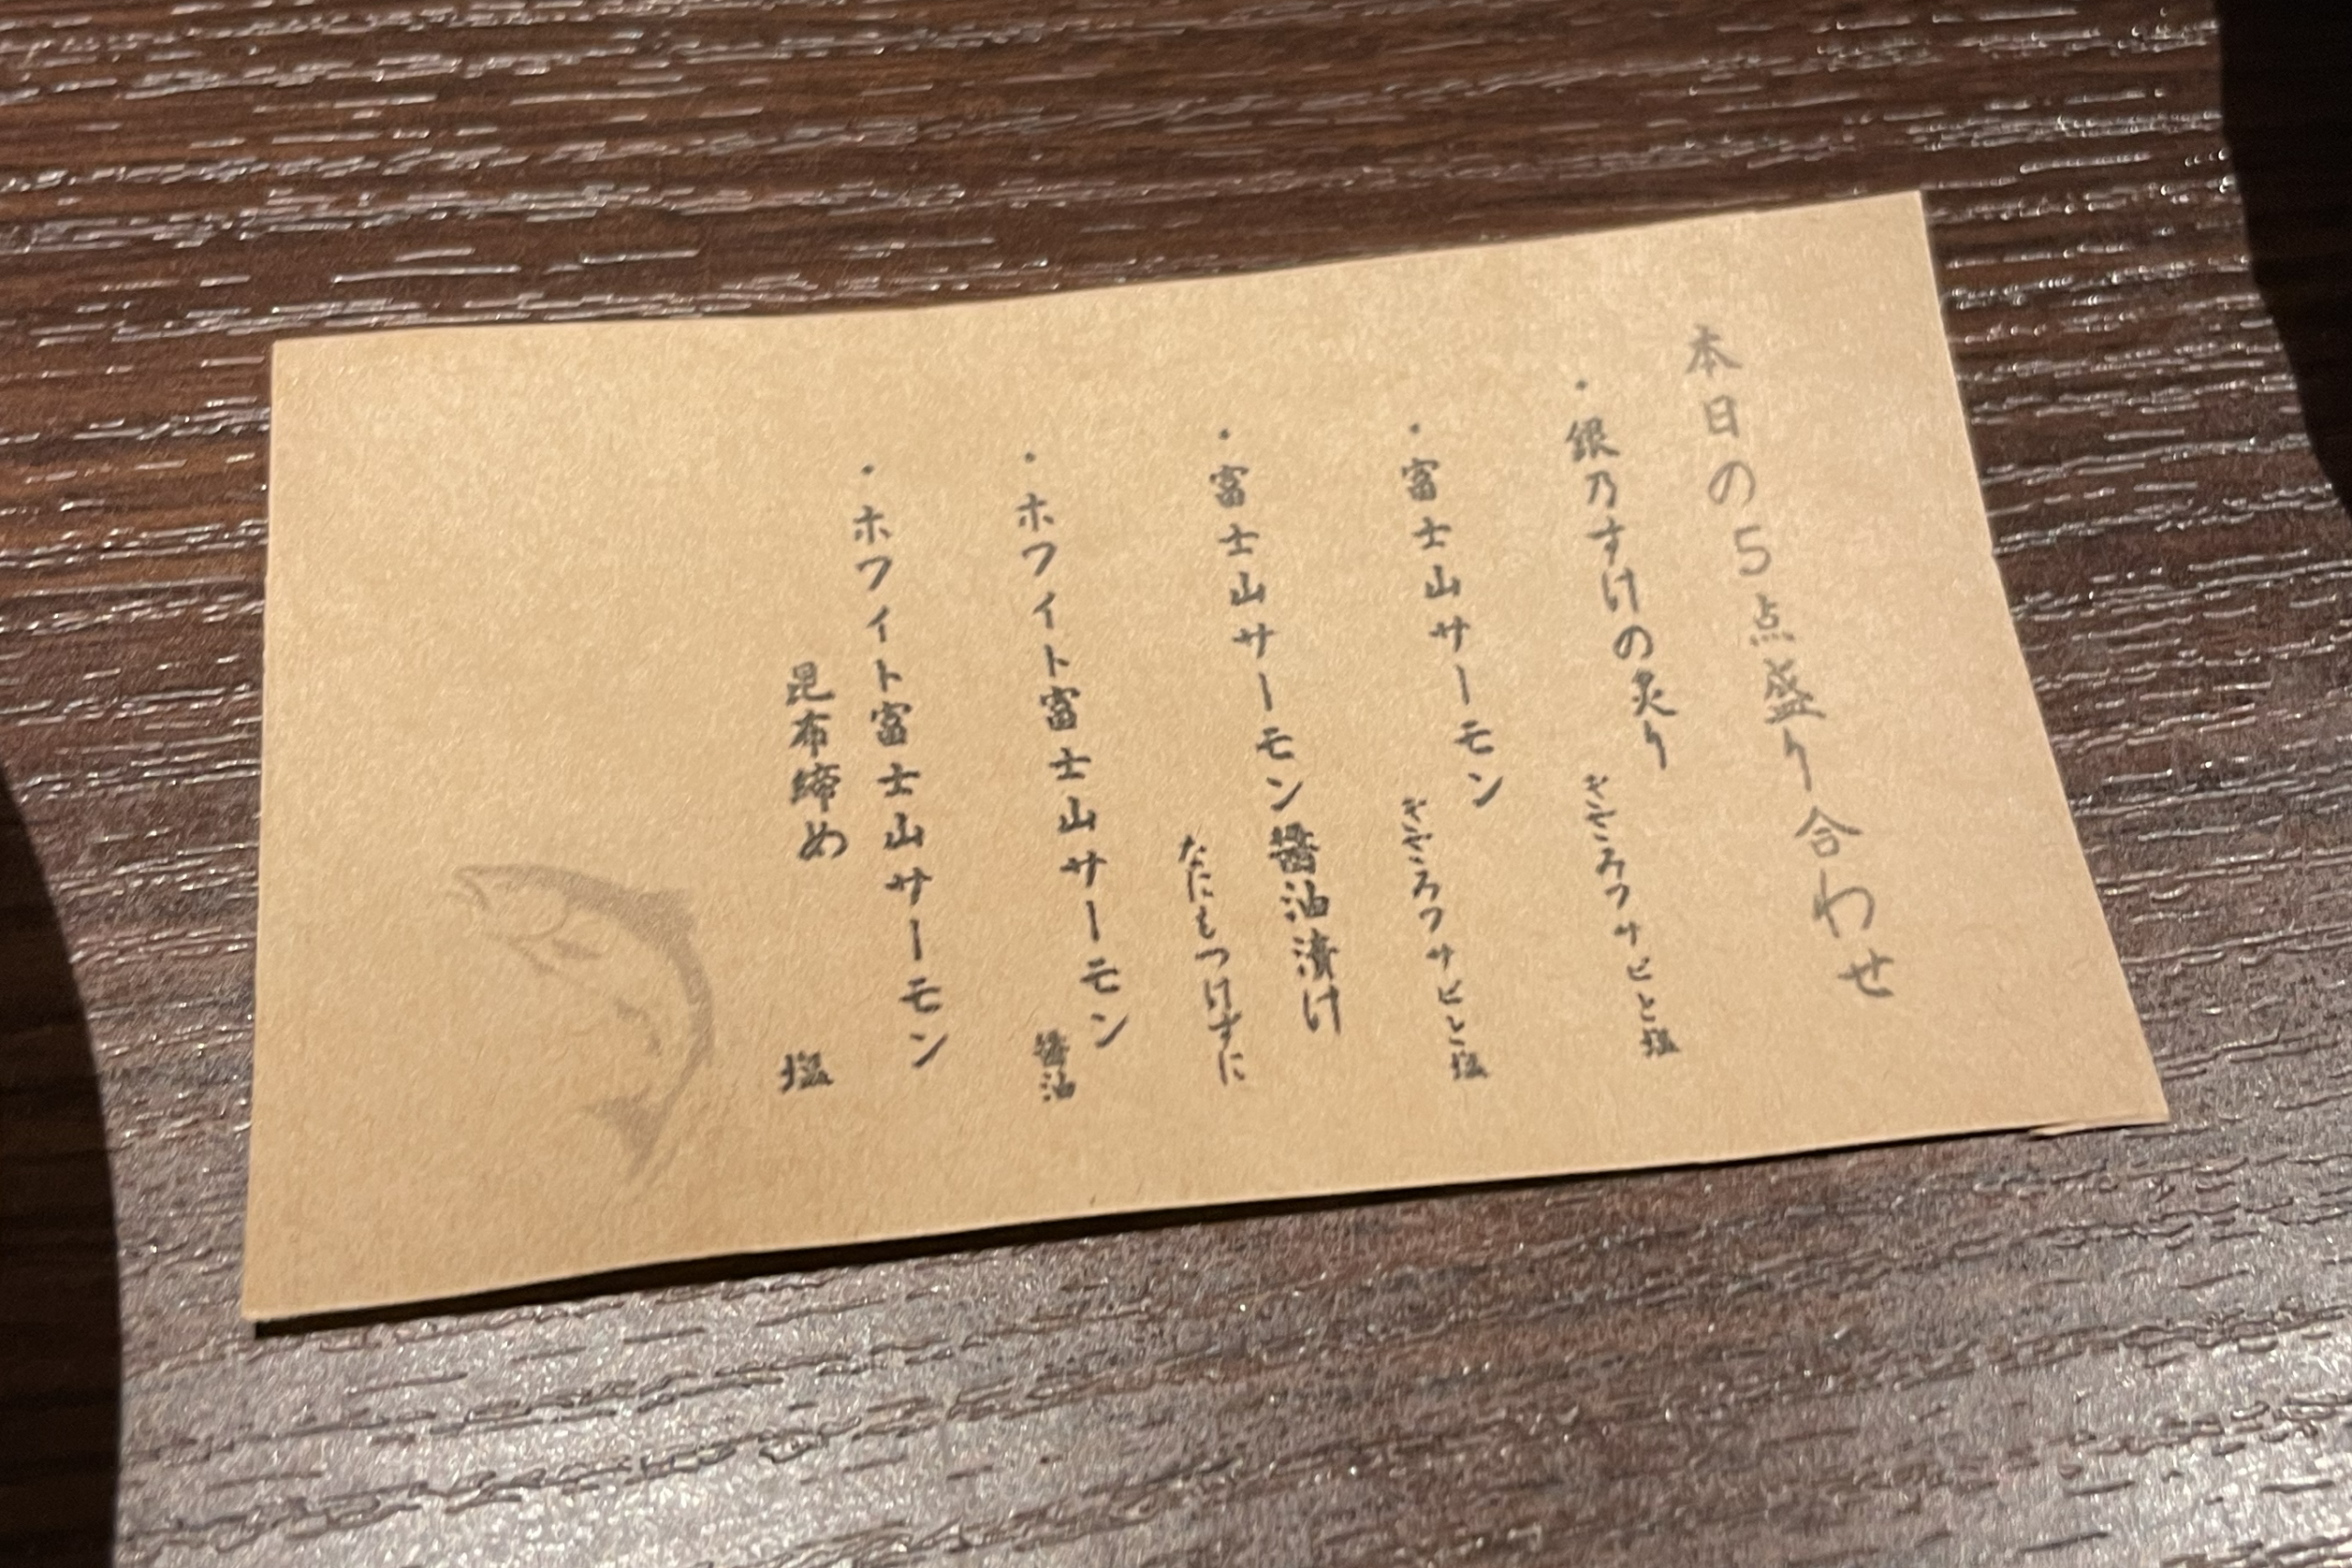 本日の5点盛り合わせ
・銀乃すけの炙り
きざみワサビと塩
・富士山サーモン
きざみワサビと塩
・富士山サーモン醤油漬け
なにもつけずに
・ホワイト富士山サーモン
醤油
・ホワイト富士山サーモン
昆布締め
塩